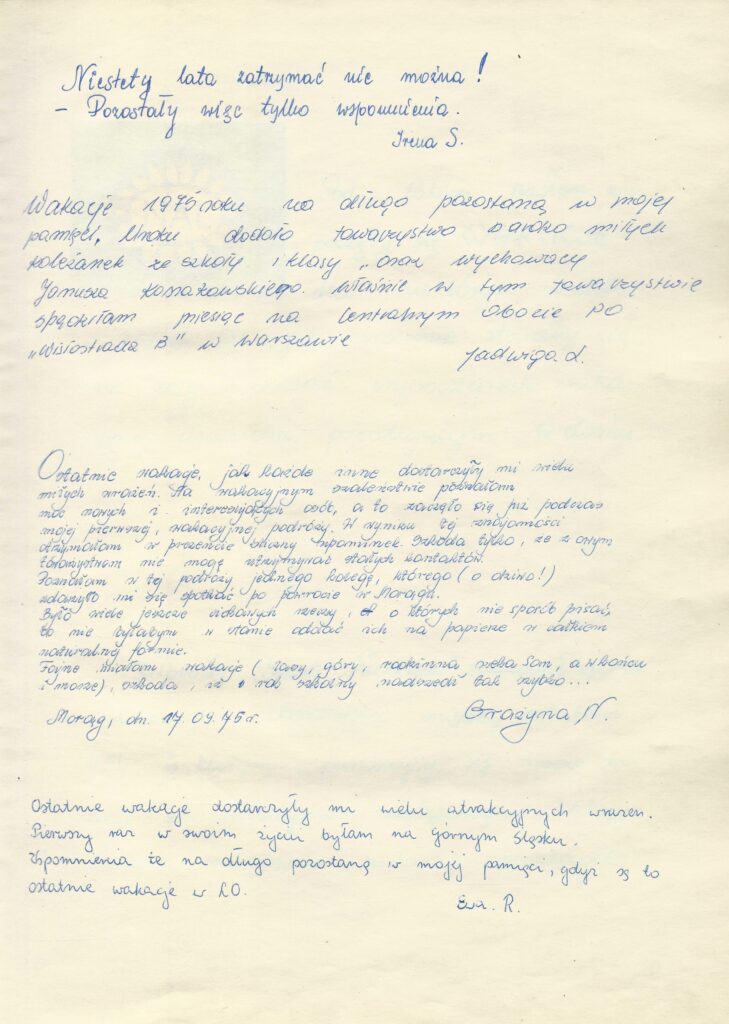 Niestety lata zatrzymać nie można!
- Pozostały więc tylko wspomnienia.
Irena S.
Wakacje 1975 roku na długo pozostaną w mojej
pamięci. Uroku dodało towarzystwo bardzo miłych
koleżanek ze szkoły i klasy, oraz wychowawcy
Janusza Kossakowskiego. Właśnie w tym towarzystwie
spędziłam miesiąc na Centralnym Obozie PO
„Wisłostrada B" w Warszawie
Jadwiga. L.
Ostatnie wakacje, jak każde inne dostarczyły mi wielu
miłych wrażeń. Na wakacyjnym szaleństwie poznałam
moc nowych i interesujących osób, a to zaczęło się już podczas
mojej pierwszej, wakacyjnej podróży. W wyniku tej znajomości
otrzymałam w prezencie śliczny upominek. Szkoda tylko, że z owym
towarzystwem nie mogę utrzymywać stałych kontaktów.
Poznałam w tej podróży jednego kolegę, którego (o dziwo!)
zdarzyło mi się spotkać po powrocie w Morągu.
Było wiele jeszcze ciekawych rzeczy, o których nie sposób pisać,
bo nie byłabym w stanie oddać ich na papierze w całkiem
naturalnej formie.
Fajne miałam wakacje (lasy, góry, rodzinna a w końcu
i morze), szkoda, iż rok szkolny nadszedł tak szybko...
Morąg, dn. 17.09.75 r.
Grażyna N.
Ostatnie wakacje dostarczyły mi wielu atrakcyjnych wrażeń.
Pierwszy raz w swoim życiu byłam na górnym Śląsku.
Wspomnienia te na długo pozostaną w mojej pamięci, gdyż są to
ostatnie wakacje w LO.
Ewa. R.